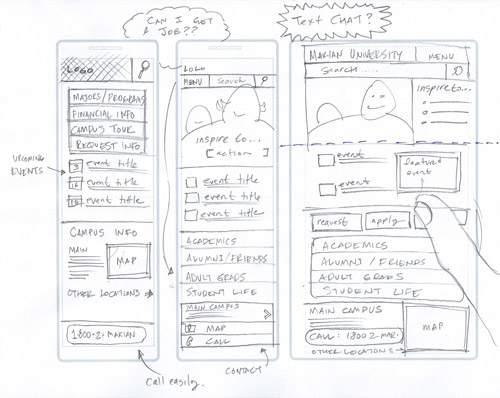 CAN I GET
A JOB??
TEXT CHAT?
LOGO
MAJORS/PROGRAMS
FINANCIAL INFO
CAMPUS TOUR
REQUEST INFO
UPCOMING
EVENTS
event title
event title
event title
CAMPUS INFO
MAIN
MAP
OTHER LOCATIONS
1·800·2·MARIAN
call easily.
LOGO
MENU
Search
inspire to...
[action]
event title
event title
event title
ACADEMICS
ALUMNI/FRIENDS
ADULT GRADS
STUDENT LIFE
MAIN CAMPUS
MAP
CALL
CONTACT
MARIAN UNIVERSITY
MENU
Search...
inspire to...
event
event
featured
event
request
apply
ACADEMICS
ALUMNI/FRIENDS
ADULT GRADS
STUDENT LIFE
MAIN CAMPUS
CALL: 1800 2·MAR.
OTHER LOCATIONS
MAP